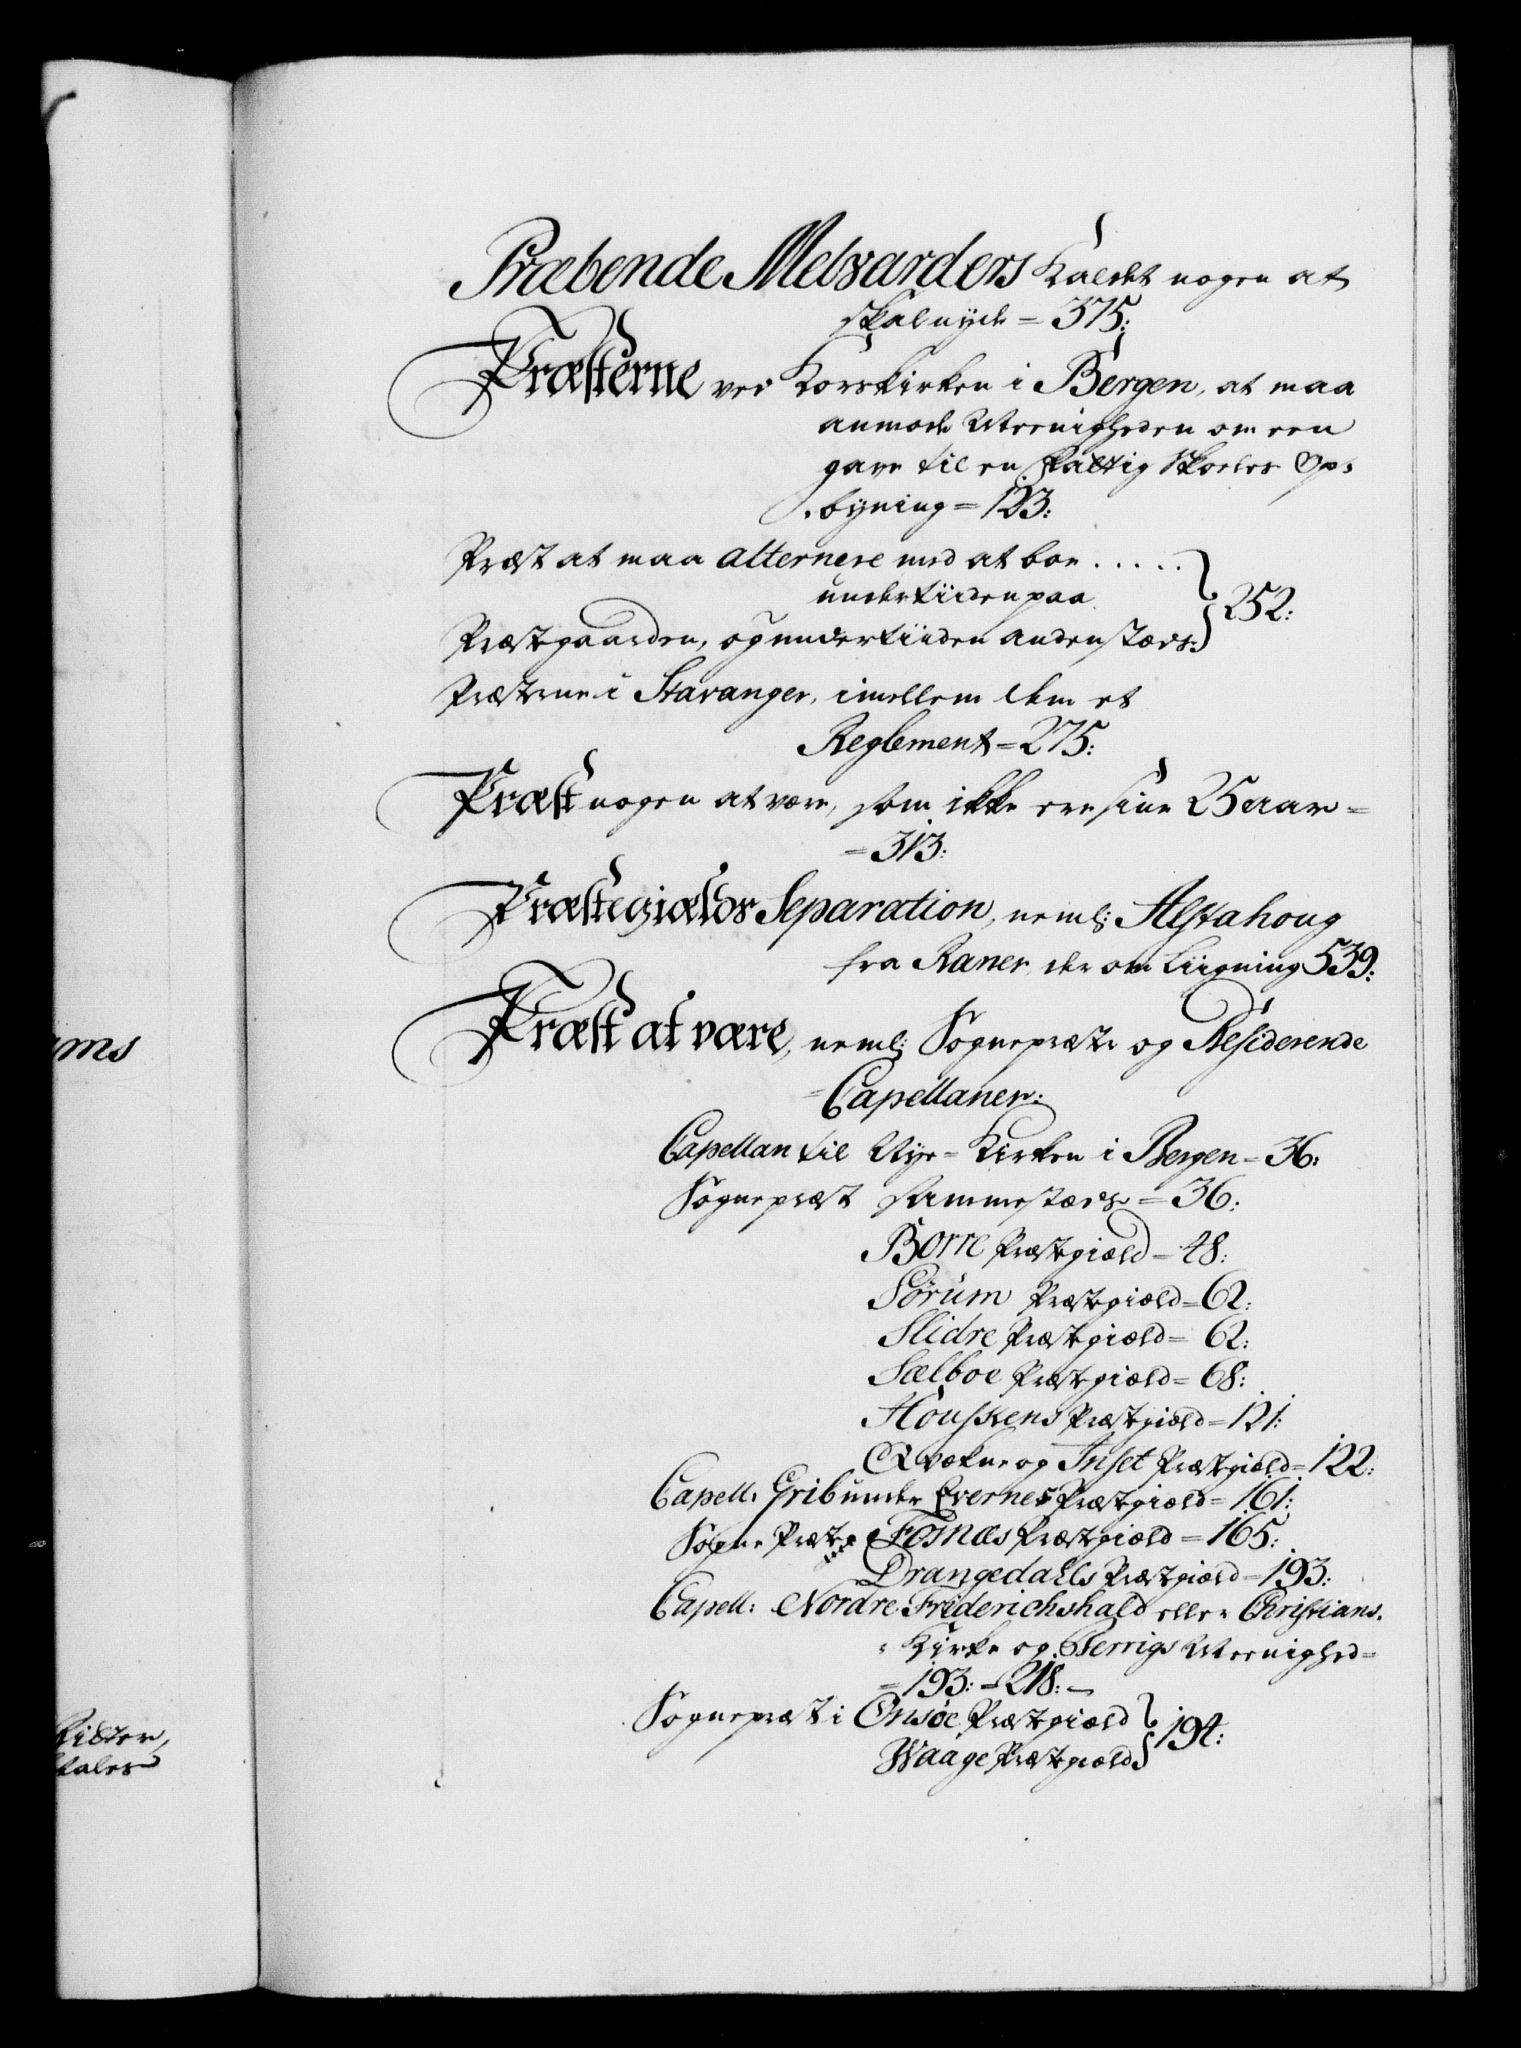 Præbende Melvarders Kaldet nogen at
skal nyde = 375:
Præsterne ved Korskirken i Bergen, at maa
anmode Meenigheden om een
gave til en fattig Skoeles Op-
bygning = 123:
Præst at maa alternere med at boe . . . . .
undertiiden paa
Præstegaarden, og undertiiden andenstæds: } 252:
Præsterne i Stavanger, imellem dem et
Reglement = 275:
Præst nogen at være, som ikke ere sine 25 aar =
= 313:
Præstegiælds Separation, neml: Alstahoug
fra Ranen, der om Liigning 539:
Præst at være, neml: Sognepræste og Residerende
Capellaner:
Capellan til Nye-Kirken i Bergen = 36:
Sognepræst sammestæds = 36:
Borre Præstegiæld = 48:
Sørum Præstegiæld = 62:
Slidre Præstegiæld = 62:
Sælboe Præstegiæld = 68:
Houskens Præstegiæld = 121:
Qvækne og Inset Præstegiæld = 122:
Capell: Grib under Evernes Præstegiæld = 161:
Sogne Præst Fosnæs Præstegiæld = 165:
Drangedahls Præstegiæld = 193:
Capell: Nordre Friderichshald eller Christians-
Kirke og Berrigs Meenighed =
= 193: = 218: =
Sognepræst i Onsøe Præstegiæld } 194:
Waage Præstegiæld
ms
Ridter,
tales